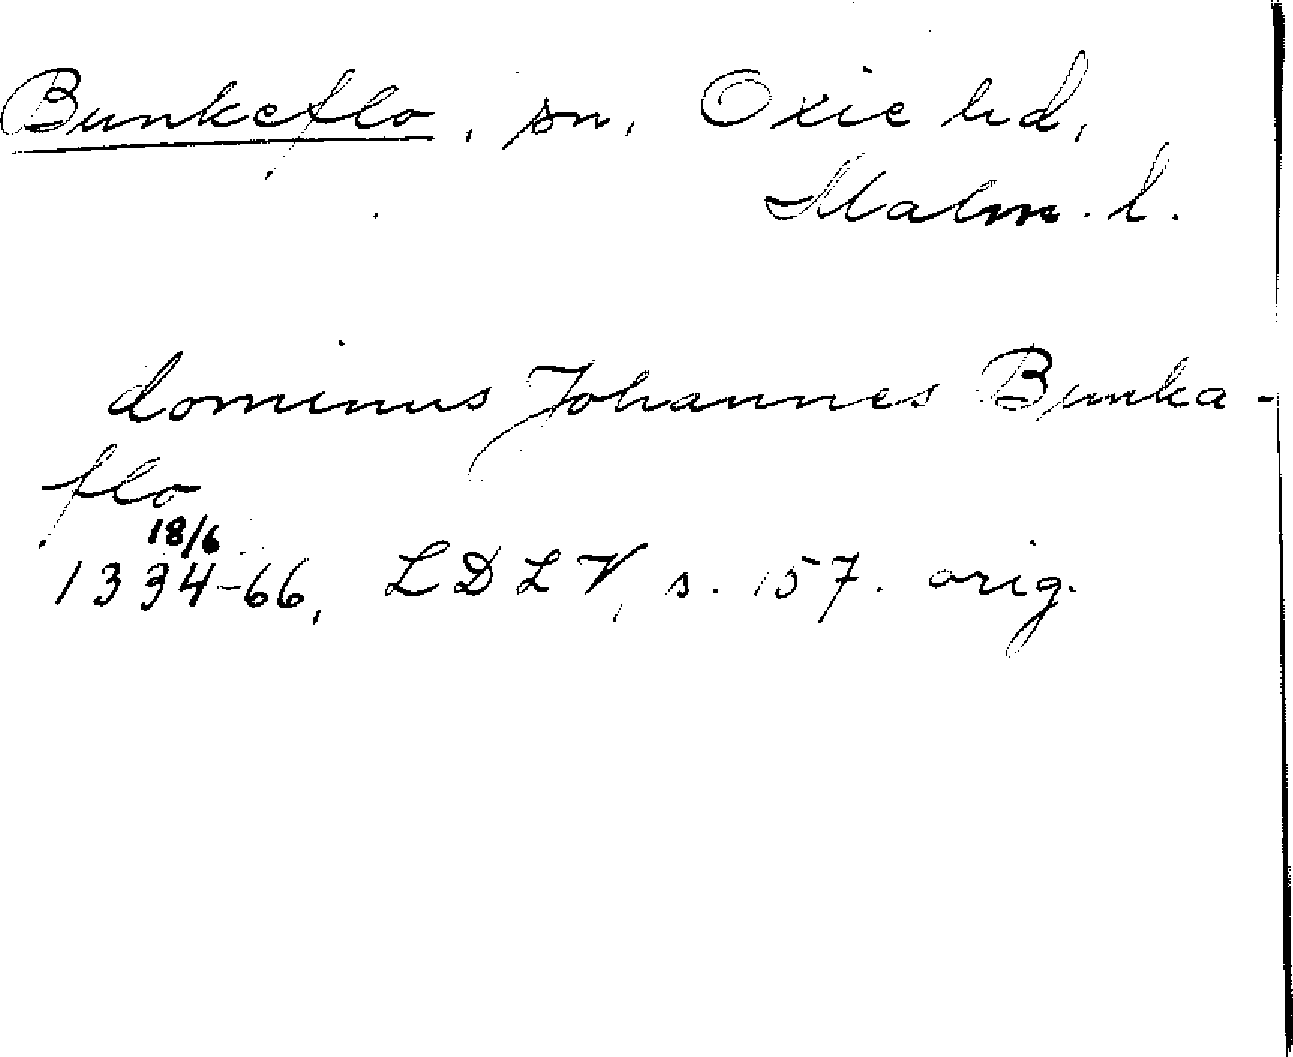 Bunkeflo, sn, Oxie hd,
Malm. l.
dominus Johannes Bunka-
flo
18/6
1334-66, LDLV, s. 157. orig.